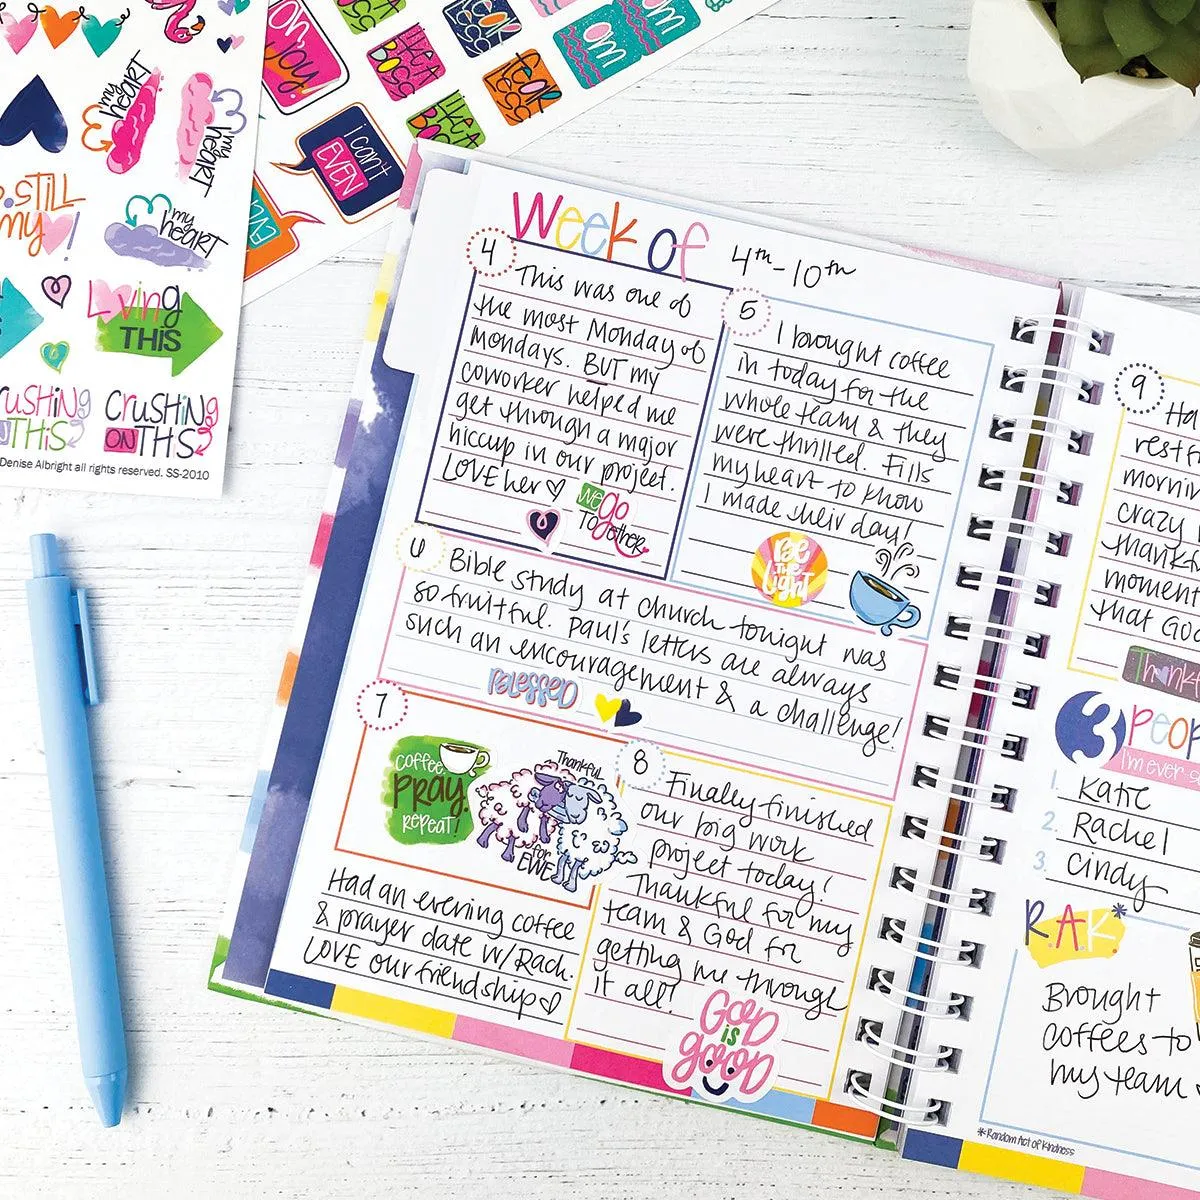 my heart
my heart
my heart
STILL
my
!
Loving
THIS
CRUSHING
THIS
CRUSHING
ON THIS
Denise Albright all rights reserved. SS-2010
you!
LIKE A
BOSS
LIKE A
BOSS
I can't
EVEN
EVEN
Week of 4th-10th
4
This was one of
the most Monday of
Mondays. BUT my
coworker helped me
get through a major
hiccup in our project.
LOVE her♡
we go
Together
5
I brought coffee
in today for the
whole team & they
were thrilled. Fills
my heart to know
I made their day!
Be
the
light
6
Bible study at church tonight was
so fruitful. Paul's letters are always
such an encouragement & a challenge!
BLESSED
7
coffee.
PRAY.
REPEAT!
Thankful
for
EWE
Had an evening coffee
& prayer date w/Rach.
LOVE our friendship♡
8
Finally finished
our big work
project today!
Thankful for my
team & God for
getting me through
it all!
GOD
IS
good
9
restf
mornin
crazy
thankf
moment
that Go
Thankf
3 PEOP
I'm ever-s
1. Katie
2. Rachel
3. Cindy
R.A.K.*
Brought
coffees to
my team
*Random Act of Kindness